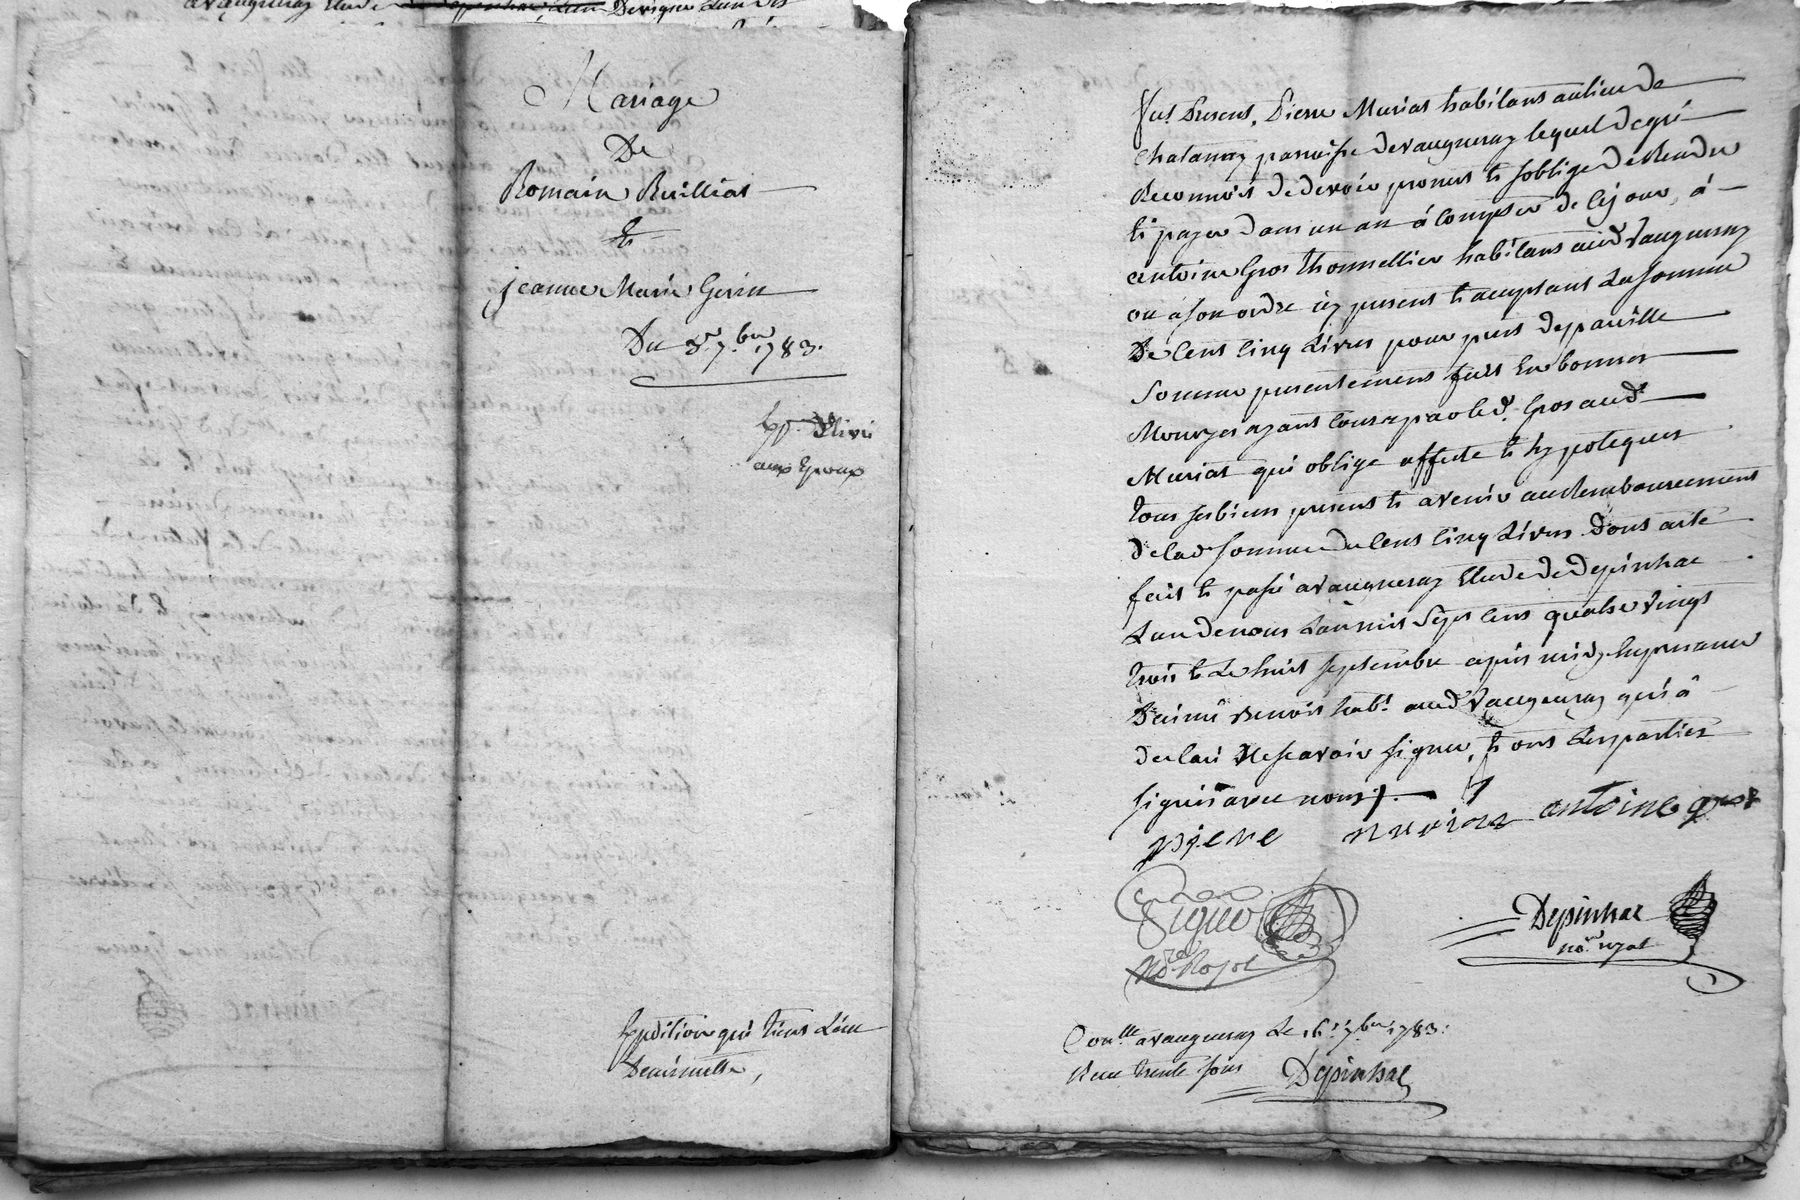 Mariage
De
Romain Ruilliat
Et
jeanne Marie Gerin
Du 3e 7.bre 1783.
Exp. Délivré
aux Epoux
Expédition qui tient Lieu
De minutte,
fut Present, Pierre Muriat habitant au lieu de
Chatanay parroisse de vaugneray lequel de gré
Reconnoit de devoir promet et s'oblige de Rendre
et payer dans un an à Compter de Ce jour, à
antoine Gros thonnellier habitant aud Vaugneray
ou à son ordre icy present et acceptant La somme
De Cent Cinq Livres pour prest de pareille
Somme presentement fait En bonnes
Monoyes ayant Cours par led. Gros aud
Muriat qui oblige affecte et hypoteque
tous ses biens present et avenir au Remboursement
de lad somme de Cent Cinq Livres Dont acte
fait et passé a vaugneray Etude de Depinhac
L'un de nous L'an mil Sept Cent quatre vingt
trois et Le huit septembre après midy,
Benoit habt. aud Vaugneray qui a
declaré Ne scavoir signer, Et ont Les parties
signés avec nous.
piere muriat antoine gros
Depinhac
no.re royal
No.re Royal
Con.lle a vaugneray Le 16. 7.bre 1783.
Reçu trente sous Depinhac